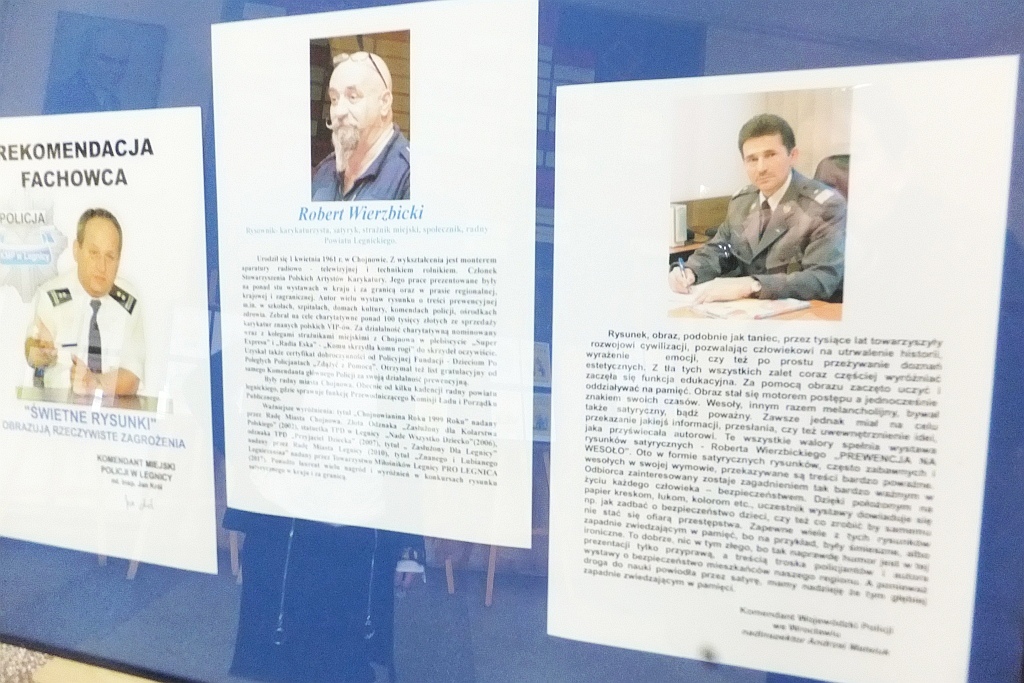 REKOMENDACJA
FACHOWCA
POLICJA
KMP w Legnicy
"ŚWIETNE RYSUNKI"
OBRAZUJĄ RZECZYWISTE ZAGROŻENIA
KOMENDANT MIEJSKI
POLICJI W LEGNICY
Robert Wierzbicki
Rysownik- karykaturzysta, satyryk, strażnik miejski, społecznik, radny
Powiatu Legnickiego.
Urodził się 1 kwietnia 1961 r. w Chojnowie. Z wykształcenia jest monterem
aparatury radiowo - telewizyjnej i technikiem rolnikiem. Członek
Stowarzyszenia Polskich Artystów Karykatury. Jego prace prezentowane były
na ponad stu wystawach w kraju i za granicą oraz w prasie regionalnej,
krajowej i zagranicznej. Autor wielu wystaw rysunku o treści prewencyjnej
m.in. w szkołach, szpitalach, domach kultury, komendach policji, ośrodkach
zdrowia. Zebrał na cele charytatywne ponad 100 tysięcy złotych ze sprzedaży
karykatur znanych polskich VIP-ów. Za działalność charytatywną nominowany
wraz z kolegami strażnikami miejskimi z Chojnowa w plebiscycie „Super
Expresu" i „Radia Eska" - „Komu skrzydła komu rogi" do skrzydeł oczywiście.
Uzyskał także certyfikat dobroczynności od Policyjnej Fundacji - Dzieciom Po
Poległych Policjantach „Zdążyć z Pomocą". Otrzymał też list gratulacyjny od
samego Komendanta głównego Policji za swoją działalność prewencyjną.
Były radny miasta Chojnowa. Obecnie od kilku kadencji radny powiatu
legnickiego, gdzie sprawuje funkcję Przewodniczącego Komisji Ładu i Porządku
Publicznego.
Ważniejsze wyróżnienia: tytuł „Chojnowianina Roku 1999 Roku" nadany
przez Radę Miasta Chojnowa, Złota Odznaka „Zasłużony dla Kolarstwa
Polskiego" (2002), statuetka TPD w Legnicy „Nade Wszystko Dziecko"(2006),
odznaka TPD „Przyjaciel Dziecka" (2007), tytuł „Zasłużony Dla Legnicy"
nadany przez Radę Miasta Legnicy (2010), tytuł „Znanego i Lubianego
Legniczanina" nadany przez Towarzystwo Miłośników Legnicy PRO LEGNICA
(2017). Ponadto laureat wielu nagród i wyróżnień w konkursach rysunku
satyrycznego w kraju i za granicą.
Rysunek, obraz, podobnie jak taniec, przez tysiące lat towarzyszyły
rozwojowi cywilizacji, pozwalając człowiekowi na utrwalenie historii,
wyrażenie emocji, czy też po prostu przeżywanie doznań
estetycznych. Z tła tych wszystkich zalet coraz częściej wyróżniać
zaczęła się funkcja edukacyjna. Za pomocą obrazu zaczęto uczyć i
oddziaływać na pamięć. Obraz stał się motorem postępu a jednocześnie
znakiem swoich czasów. Wesoły, innym razem melancholijny, bywał
także satyryczny, bądź poważny. Zawsze jednak miał na celu
przekazanie jakiejś informacji, przesłania, czy też uwewnętrznienie idei,
jaka przyświecała autorowi. Te wszystkie walory spełnia wystawa
rysunków satyrycznych - Roberta Wierzbickiego „PREWENCJA NA
WESOŁO". Oto w formie satyrycznych rysunków, często zabawnych i
wesołych w swojej wymowie, przekazywane są treści bardzo poważne.
Odbiorca zainteresowany zostaje zagadnieniem tak bardzo ważnym w
życiu każdego człowieka – bezpieczeństwem. Dzięki położonym na
papier kreskom, łukom, kolorom etc., uczestnik wystawy dowiaduje się
np. jak zadbać o bezpieczeństwo dzieci, czy też co zrobić by samemu
nie stać się ofiarą przestępstwa. Zapewne wiele z tych rysunków
zapadnie zwiedzającym w pamięć, bo na przykład, były śmieszne, albo
ironiczne. To dobrze, nic w tym złego, bo tak naprawdę humor jest w tej
prezentacji tylko przyprawą, a treścią troska policjantów i autora
wystawy o bezpieczeństwo mieszkańców naszego regionu. A ponieważ
droga do nauki powiodła przez satyrę, mamy nadzieję że tym głębiej
zapadnie zwiedzającym w pamięci.
Komendant Wojewódzki Policji
we Wrocławiu
nadinspektor Andrzej